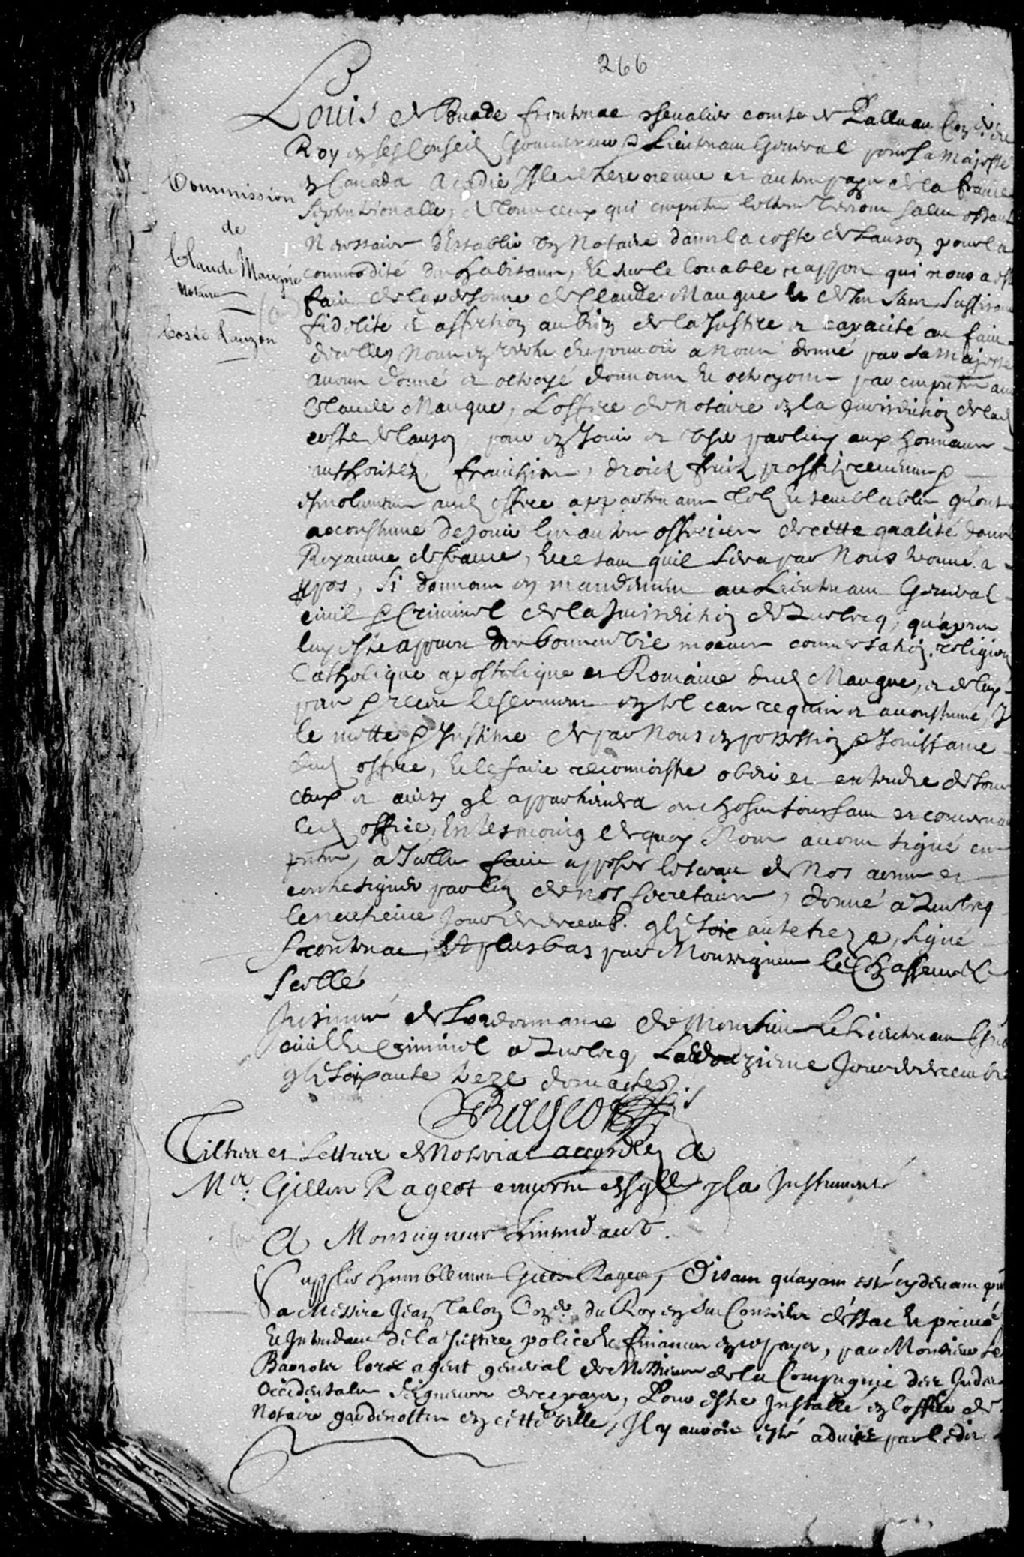 266
Louis de Buade frontenac chevalier comte de Palluau Con.er du
Roy en ses Conseils Gouverneur & Lieutenant General pour sa majesté
en Canada Acadie Isle de terre neuve et autres pays de la france
Septentrionalle, A tous ceux qui ces presentes lettres verront Salut estant
Necessaire d'establir un Notaire dans la coste de Lauson pour la
Commission
de
Claude Maugue
Notaire
Coste Lauzon
commodité des habitans, Et sur le louable rapport qui nous a esté
fait de la personne de Claude Maugue et de son Sens Suffisance
fidelité et affection au bien de la Justice et capacité au faict
d'icelles Nous en vertu du pouvoir a nous donné par sa Majesté
avons donné et octroyé donnons et octroyons par ces presentes aud
Claude Maugue, L'office de Notaire en la Jurisdiction de lad
coste de Lauson pour en Jouir et User par luy aux honneurs
authoritez, franchises, droicts fruicts proffits revenus &
esmolumens aud office appartenans tels et semblables qu'ont
accoustumé de Jouir les autres officiers de cette qualité dans le
Royaume de france, Et ce tant quil Sera par Nous ordonné a
propos, Si donnons en mandement au Lieutenant General
civil & Criminel de la Jurisdiction de Quebecq, qu'apres
luy estre apparu des bonnes vie moeurs conversation, religion
Catholique apostolique et Romaine dud Maugue, et de luy
pris & receu le serment en tel cas requis et accoustumé, Il
le mette & Institue de par Nous en possession & Jouissance
dud office, Et le face reconnoistre obeir et entendre de tous
ceux et ainsy qu'il appartiendra es choses touchant et concernant
led office, En tesmoing de quoy Nous avons signé ces
presentes, a Icelles fait apposer le sceau de Nos armes et
contresigner par l'un de nos secretaires, donné a Quebecq
le neufieme Jour de decemb. gbi soixante treize, signé
frontenac, Et plus bas par Monseigneur le Chasseur &
Scellé
Insinué de L'ordonnance de Monsieur Le Lieutenant Gnal
civil & Criminel a Quebecq, Le douzieme Jour de decembre
gbi soixante treze du matin.
Rageot
Tiltres et Lettres de Notariat accordées a
Mre. Gilles Rageot
A Monseigneur L'Intendant.
Supplie humblement Gilles Rageot, Disant qu'ayant esté cy devant pre
a Messire Jean Talon Con.er du Roy en ses Conseils d'Estat et privé
Et Intendant de la Justice police et finances en ce pays, par Monsieur Le
Barroys lors agent general de Messieurs de la Compagnie des Indes
Occidentales Seigneurs de ce pays, Pour estre Installé en l'office de
Notaire gardenottes en cette ville, Il y auroit esté admis par l'edit